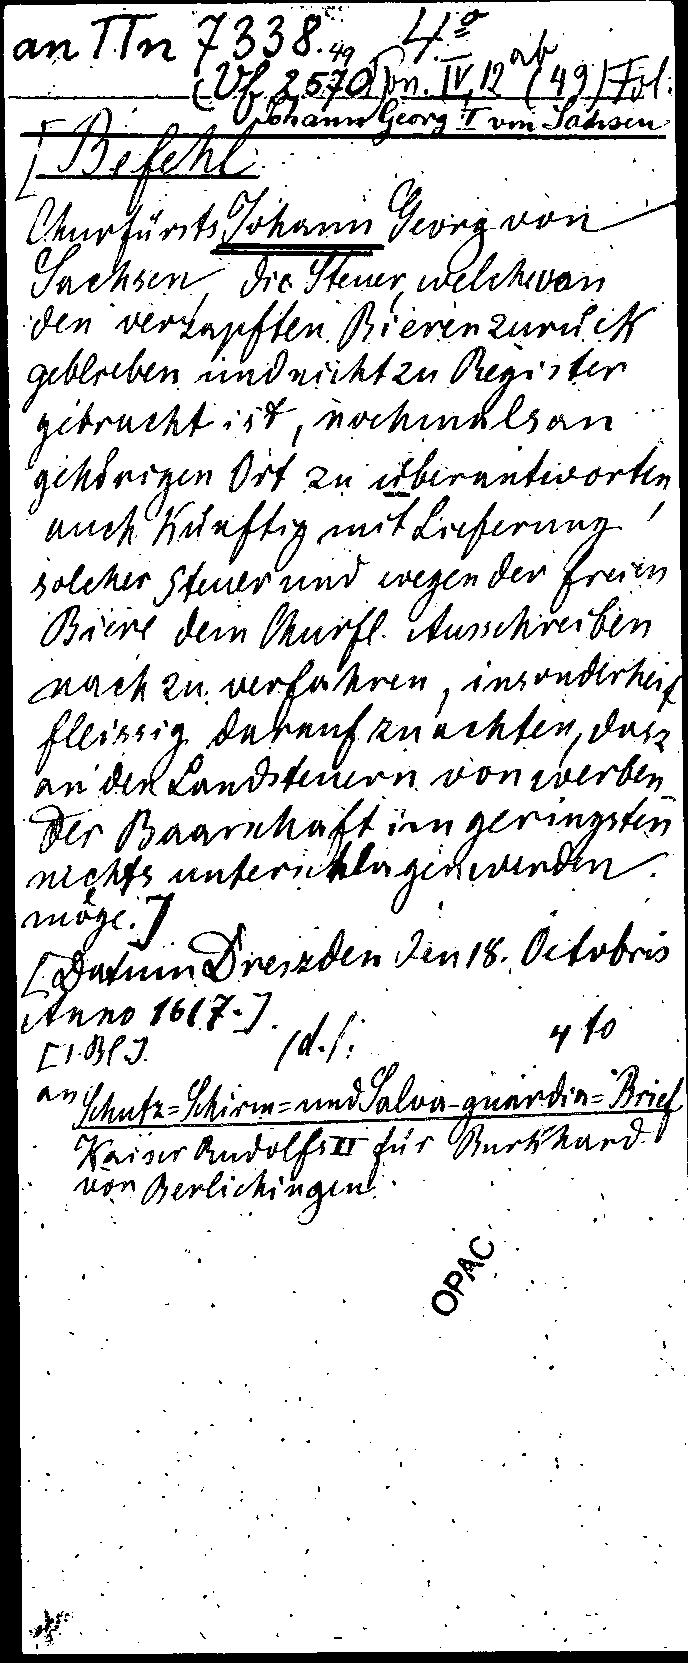 an TTn 7338.49 4º
(Vf 2570) Pon. IV, 12 ab (49) Fol.
Johann Georg I von Sachsen
[Befehl
Churfürsts Johann Georg von
Sachsen, die Steuer, welche von
den verzapften Bieren zurück
geblieben und nicht zu Register
gebracht ist, nochmals an
gehörigen Ort zu überantworten,
auch Künftig mit Lieferung
solcher Steuer und wegen der freien
Biere dem Churfl. Ausschreiben
nach zu verfahren, insonderheit
fleissig darauf zu achten, dasz
an den Landsteuern von werben
der Baarschaft im geringsten
nichts unterschlagen werden
möge.]
[Datum Dreszden den 18. Octobris
Anno 1617.]
[1. Bl]. /d./: 4to
an Schutz=Schirm=und Salva-guardia=Brief
Kaiser Rudolfs II für Burkhard
von Berlichingen.
OPAC